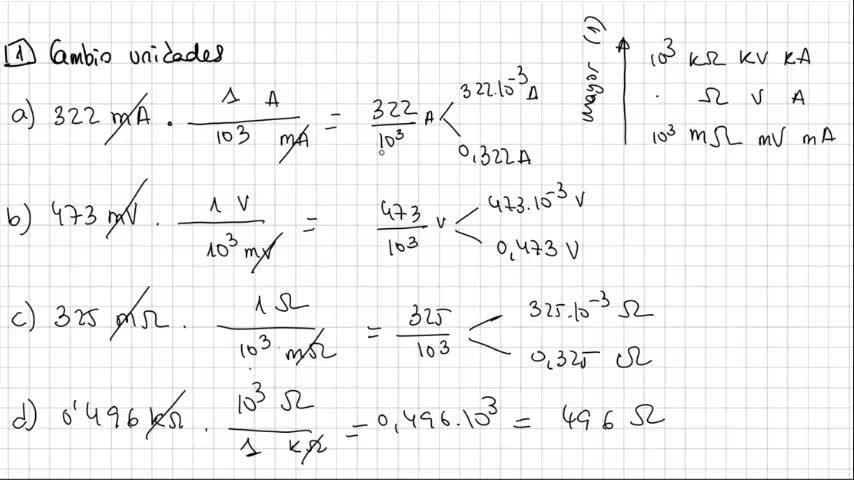 1 Cambio unidades
a) 322 mA · 1 A / 10³ mA = 322 / 10³ A < 322·10⁻³ A
0,322 A
b) 473 mV · 1 V / 10³ mV = 473 / 10³ V < 473·10⁻³ V
0,473 V
c) 325 mΩ · 1 Ω / 10³ mΩ = 325 / 10³ < 325·10⁻³ Ω
0,325 Ω
d) 0'496 kΩ · 10³ Ω / 1 kΩ = 0,496·10³ = 496 Ω
(1)
mayor
10³ kΩ kV kA
· Ω V A
10³ mΩ mV mA